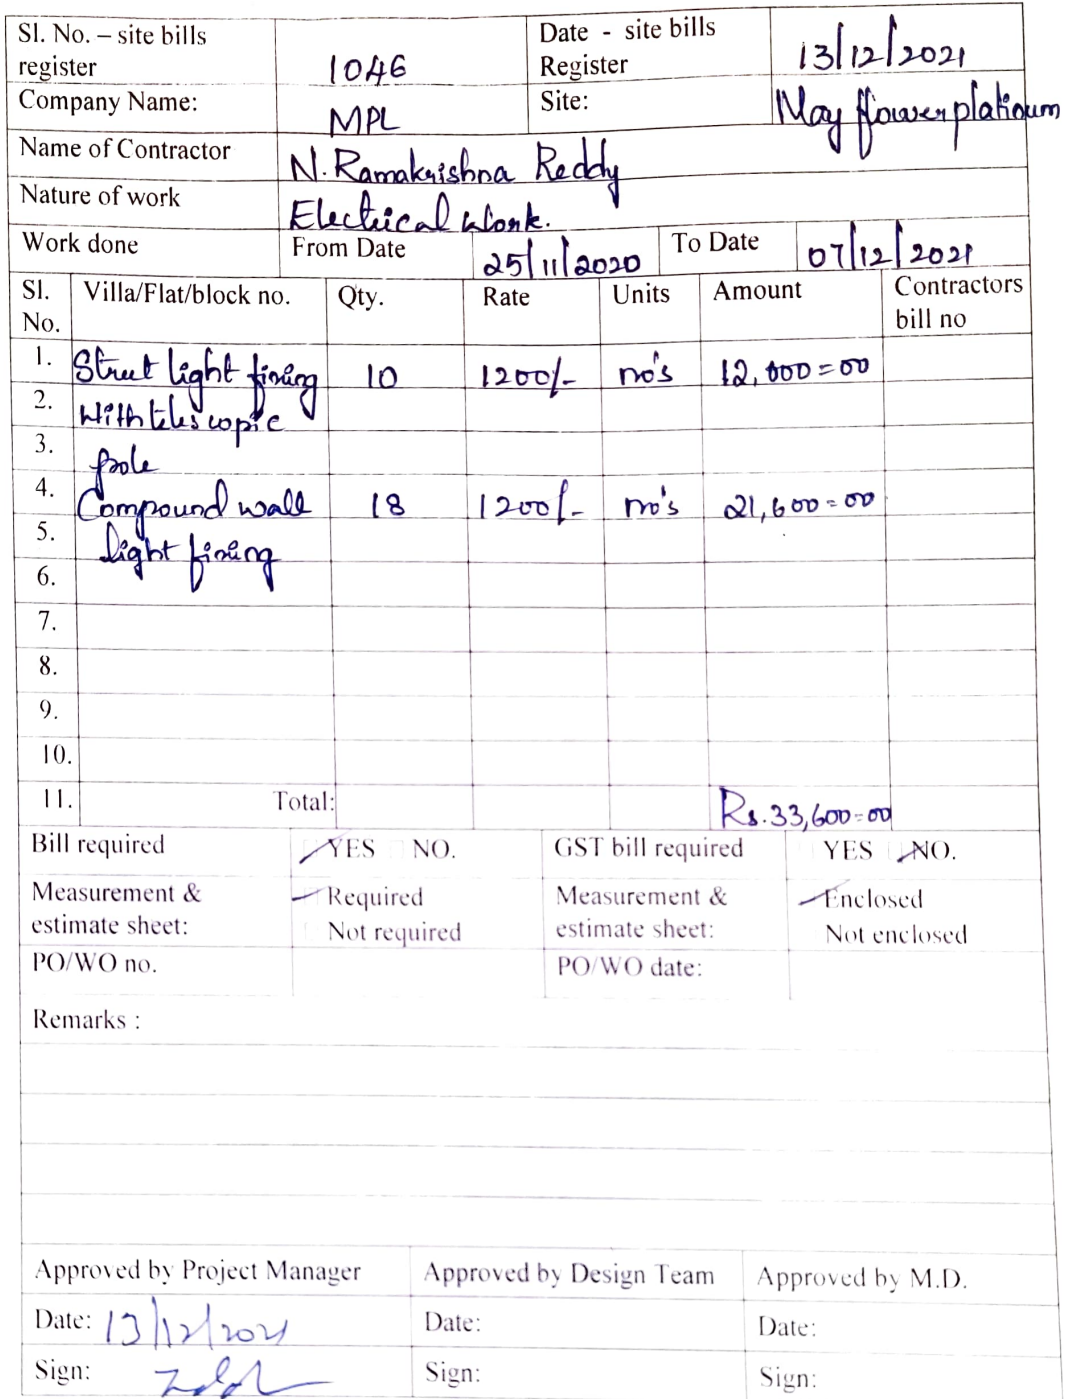 Sl. No. – site bills register 1046 Date - site bills Register 13/12/2021
Company Name: MPL Site: May flower platinum
Name of Contractor N. Ramakrishna Reddy
Nature of work Electrical Work.
Work done From Date 25/11/2020 To Date 07/12/2021
Sl. No. Villa/Flat/block no. Qty. Rate Units Amount Contractors bill no
1. Street light fixing 10 1200/- no's 12,000=00
2. With telescopic
3. pole
4. Compound wall 18 1200/- no's 21,600=00
5. light fixing
6.
7.
8.
9.
10.
11. Total: Rs.33,600=00
Bill required YES NO. GST bill required YES NO.
Measurement & estimate sheet: Required Not required Measurement & estimate sheet: Enclosed Not enclosed
PO/WO no. PO/WO date:
Remarks :
Approved by Project Manager Approved by Design Team Approved by M.D.
Date: 13/12/2021 Date: Date:
Sign: Sign: Sign: